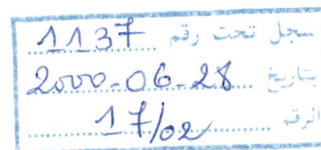 سجل تحت رقم 1137
بتاريخ 2000-06-28
الرقم 17/02